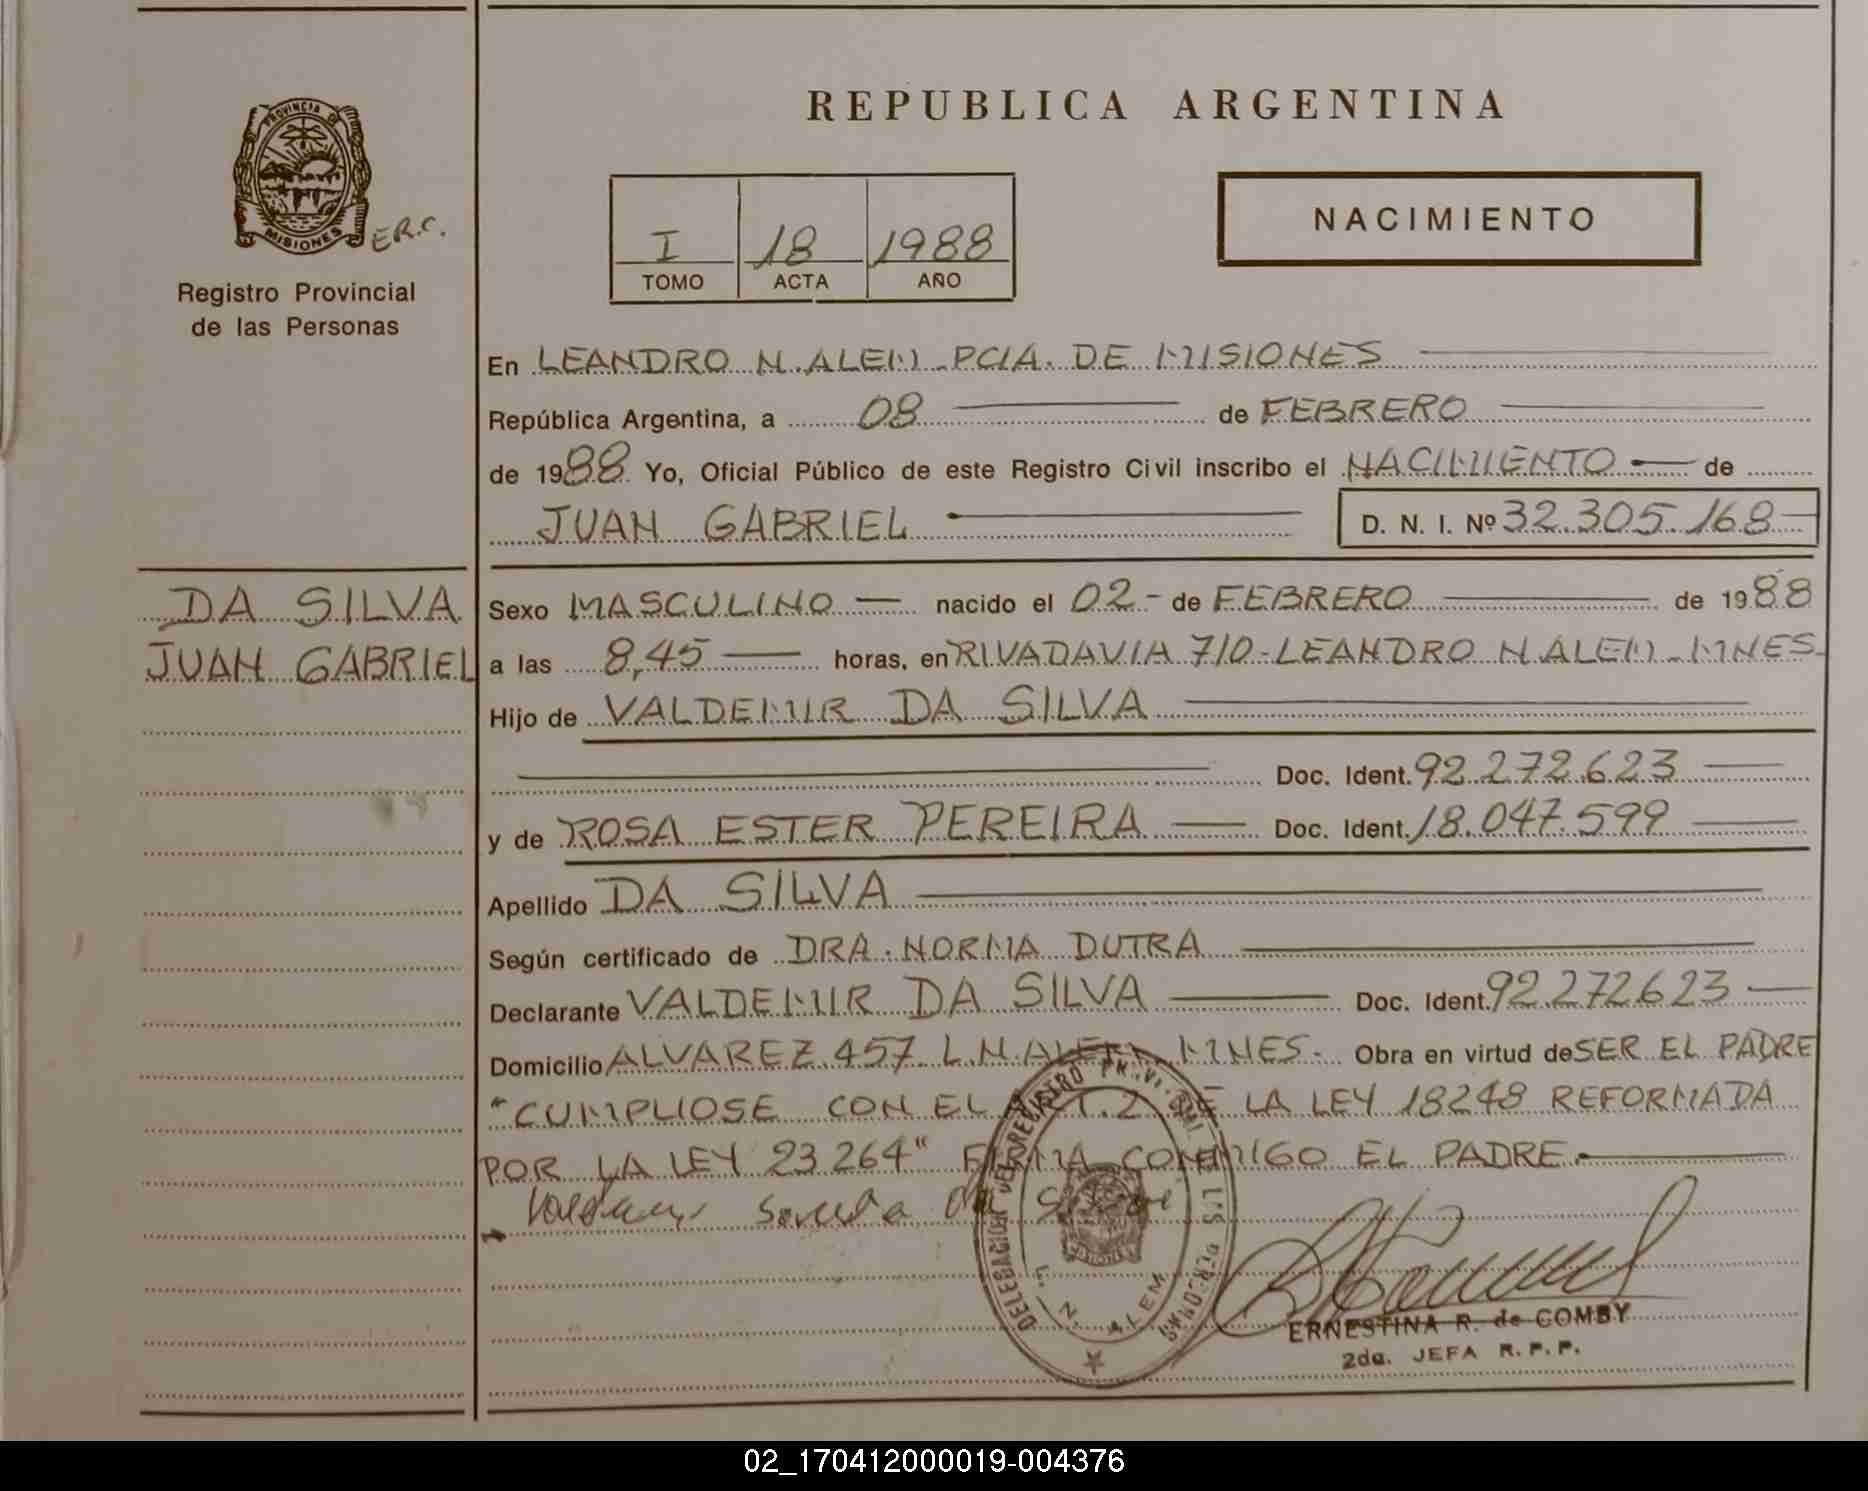 REPUBLICA ARGENTINA
PROVINCIA DE
MISIONES
E.R.C.
Registro Provincial
de las Personas
I 18 1988
TOMO ACTA AÑO
NACIMIENTO
En LEANDRO N. ALEM - PCIA. DE MISIONES
República Argentina, a 08 de FEBRERO
de 1988 Yo, Oficial Público de este Registro Civil inscribo el NACIMIENTO de
JUAN GABRIEL D. N. I. Nº 32.305.168
DA SILVA
JUAN GABRIEL
Sexo MASCULINO nacido el 02 - de FEBRERO de 1988
a las 8,45 horas, en RIVADAVIA 710 - LEANDRO N. ALEM - MNES.
Hijo de VALDEMIR DA SILVA
Doc. Ident. 92.272.623
y de ROSA ESTER PEREIRA Doc. Ident. 18.047.599
Apellido DA SILVA
Según certificado de DRA. NORMA DUTRA
Declarante VALDEMIR DA SILVA Doc. Ident. 92.272.623
Domicilio ALVAREZ 457. L.N. ALEM MNES. Obra en virtud de SER EL PADRE
"CUMPLIOSE CON EL ART. 2 DE LA LEY 18248 REFORMADA
POR LA LEY 23264" FIRMA CONMIGO EL PADRE.
da Silva
DELEGACION DEL REGISTRO PROVINCIAL DE LAS PERSONAS
L. N. ALEM
ERNESTINA R. de COMBY
2da. JEFA R. P. P.
02_170412000019-004376